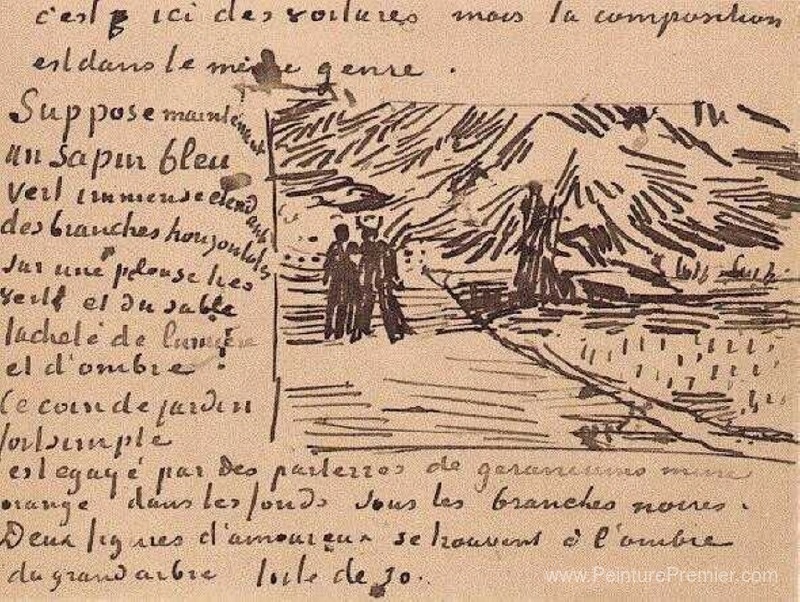 c'est ici des voitures mais la composition
est dans le même genre.
Suppose maintenant
un sapin bleu
vert immense étendant
des branches horizontales
sur une pelouse très
verte et du sable
tacheté de lumière
et d'ombre
Ce coin de jardin
fort simple
est egayé par des parterres de geraniums mine
orange dans les fonds sous les branches noires.
Deux figures d'amoureux se trouvent à l'ombre
du grand arbre toile de 30.
www.PeinturePremier.com